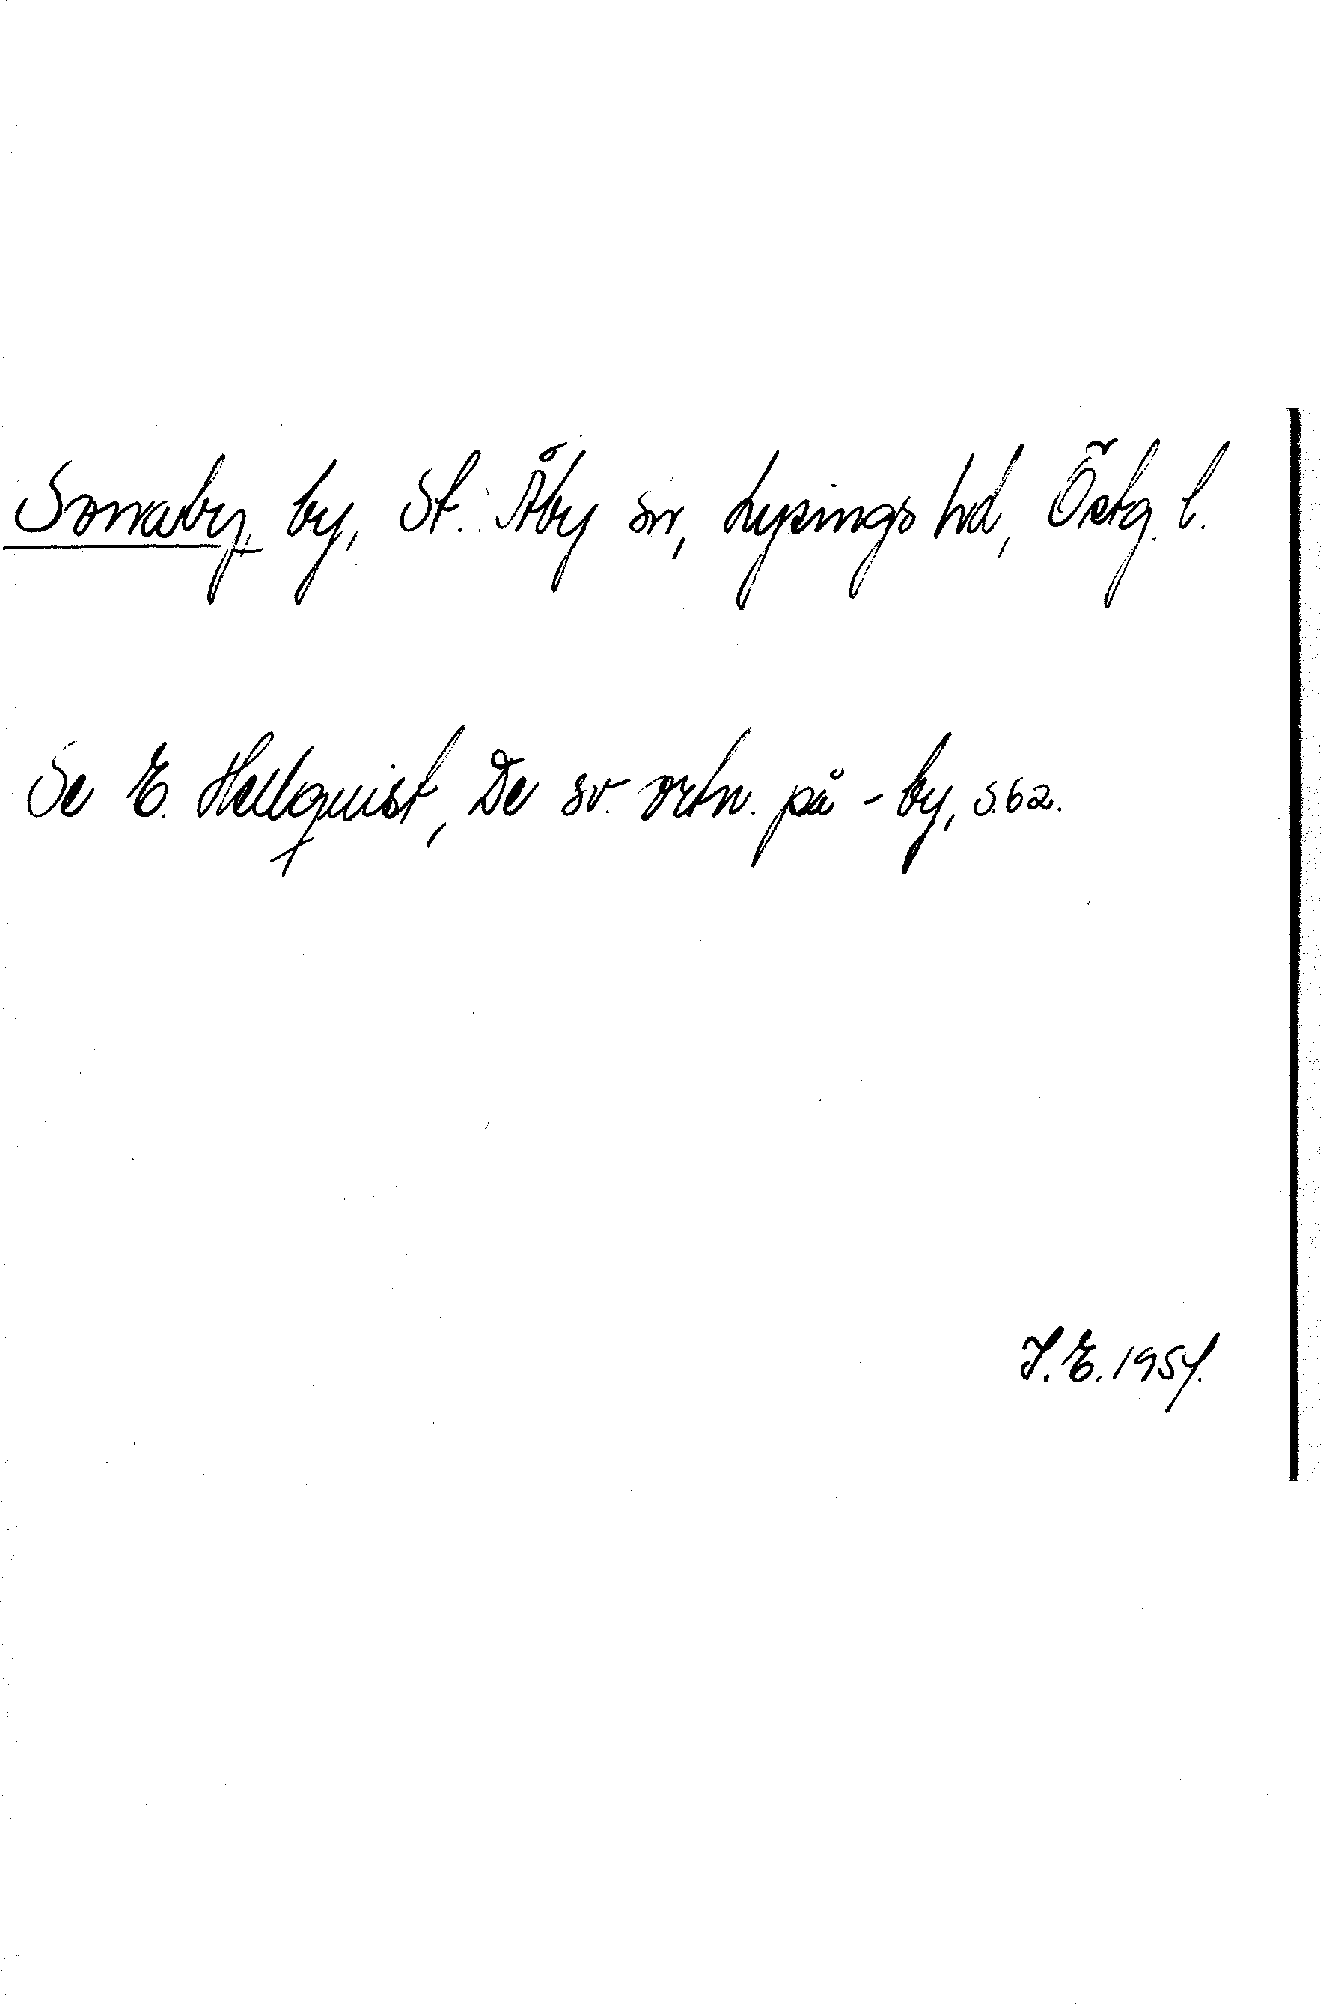 Sonaby, by, St. Åby sn, Lysings hd, Östg. l.
Se E. Hellquist, De sv. ortn. på -by, s. 62.
I. E. 1954.